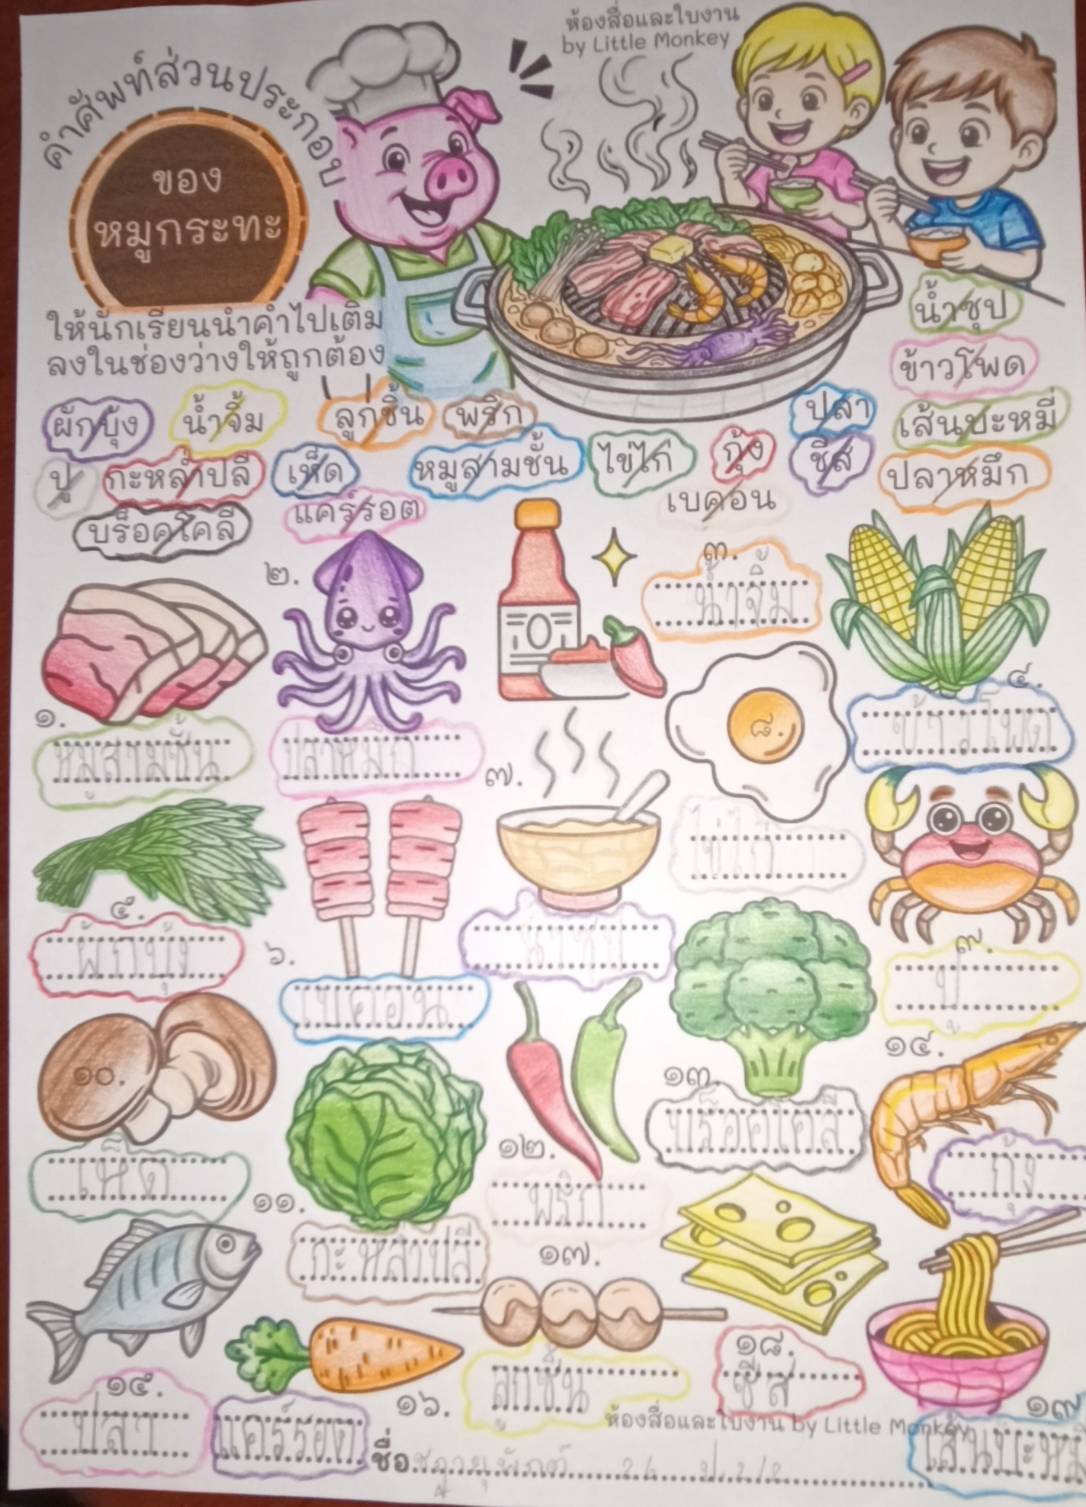 ห้องสื่อและใบงาน
by Little Monkey
คำศัพท์ส่วนประกอบ
ของ
หมูกระทะ
ให้นักเรียนนำคำไปเติม
ลงในช่องว่างให้ถูกต้อง
น้ำซุป
ข้าวโพด
ผักบุ้ง น้ำจิ้ม ลูกชิ้น พริก ปลา เส้นบะหมี่
ปู กะหล่ำปลี เห็ด หมูสามชั้น ไข่ไก่ กุ้ง ชีส ปลาหมึก
บร็อคโคลี แคร์รอต เบคอน
๑. หมูสามชั้น
๒. ปลาหมึก
๓. น้ำจิ้ม
๔. ข้าวโพด
๕. ผักบุ้ง
๖. เบคอน
๗. น้ำซุป
๘. ไข่ไก่
๙. ปู
๑๐. เห็ด
๑๑. กะหล่ำปลี
๑๒. พริก
๑๓. บร็อคโคลี
๑๔. กุ้ง
๑๕. ปลา
๑๖. แคร์รอต
๑๗. ลูกชิ้น
๑๘. ชีส
๑๙ เส้นบะหมี่
ห้องสื่อและใบงาน by Little Monkey
ชื่อ 24 ป.2/2